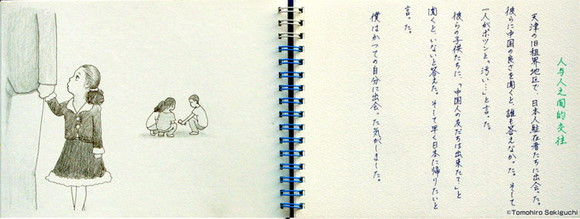 人与人之间的交往
天津の旧租界地区で、日本人駐在者たちに出会った。
彼らに中国の良さを聞くと、誰も答えなかった。そして
一人がポツンと「汚い…」と言った。
彼らの子供たちに、「中国人の友だちは出来た？」と
聞くと、いないと答えた。そして早く日本に帰りたいと
言った。
僕はかつての自分に出会った気がしました。
©Tomohiro Sekiguchi